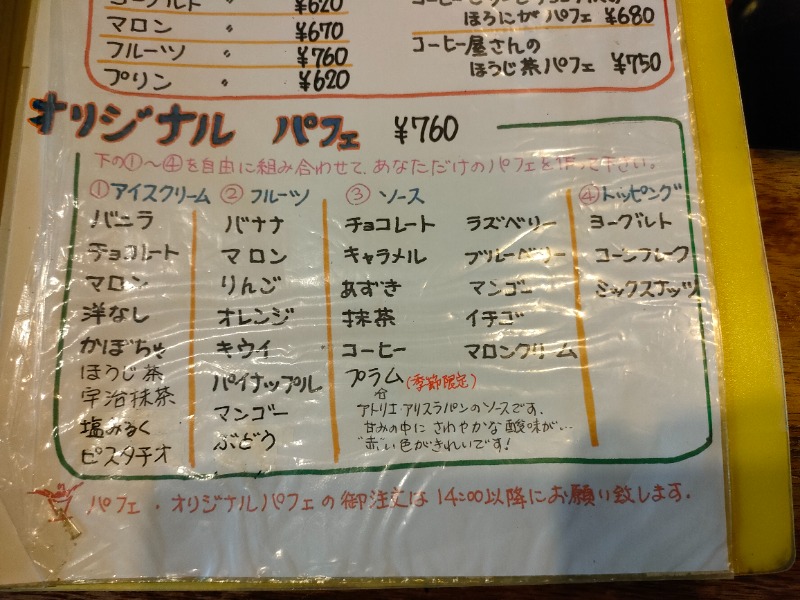 ヨーグルト 〃 ¥620
マロン 〃 ¥670
フルーツ 〃 ¥760
プリン 〃 ¥620
ほろにがパフェ ¥680
コーヒー屋さんの
ほうじ茶パフェ ¥750
オリジナル パフェ ¥760
下の①〜④を自由に組み合わせて、あなただけのパフェを作って下さい。
①アイスクリーム
バニラ
チョコレート
マロン
洋なし
かぼちゃ
ほうじ茶
宇治抹茶
塩みるく
ピスタチオ
②フルーツ
バナナ
マロン
りんご
オレンジ
キウイ
パイナップル
マンゴー
ぶどう
③ソース
チョコレート
キャラメル
あずき
抹茶
コーヒー
プラム(季節限定)
アトリエ・アリスラパンのソースです。
甘みの中に さわやかな酸味が…
赤い色がきれいです!
ラズベリー
ブルーベリー
マンゴー
イチゴ
マロンクリーム
④トッピング
ヨーグルト
コーンフレーク
ミックスナッツ
パフェ・オリジナルパフェの御注文は14:00以降にお願い致します。